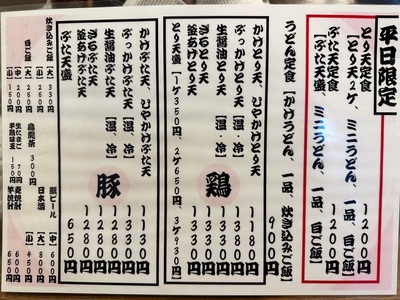 平日限定
とり天定食 1200円
【とり天2ケ、ミニうどん、一品、白ご飯】
ぶた天定食 1200円
【ぶた天、ミニうどん、一品、白ご飯】
うどん定食【かけうどん、一品、炊き込みご飯】
900円
鶏
かけとり天、ひやかけとり天 1180円
ぶっかけとり天【温・冷】 1380円
生醤油とり天【温・冷】 1330円
ざるとり天 1330円
釜あげとり天 1330円
とり天盛【1ケ350円 2ケ650円 3ケ930円】
豚
かけぶた天、ひやかけぶた天 1130円
ぶっかけぶた天【温・冷】 1330円
生醤油ぶた天【温・冷】 1280円
ざるぶた天 1280円
釜あげぶた天 1280円
ぶた天盛 650円
炊き込みご飯
【大】 330円
【小】 250円
白ご飯
【大】 250円
【中】 200円
【小】 150円
烏龍茶 300円
生たまご 70円
半熟味玉 150円
瓶ビール【中】 600円
日本酒【大】 800円
【小】 450円
麦焼酎 650円
芋焼酎 650円